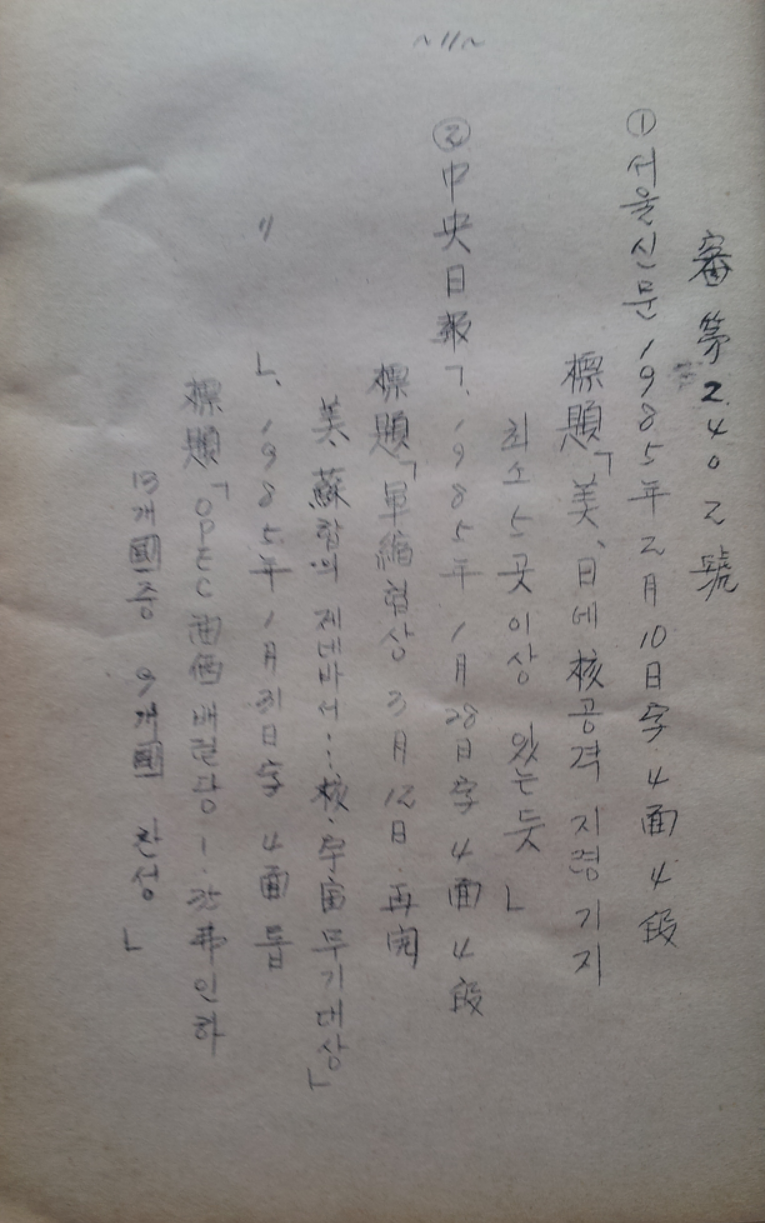 ~11~
審第2402號
① 서울신문 1985年 2月 10日字 4面 4段
標題「美, 日에 核공격 지령 기지
최소 5곳 이상 있는듯」
② 中央日報 ㄱ. 1985年 1月 28日字 4面 4段
標題「軍縮협상 3月 12日 再開
美·蘇합의 제네바서…核·宇宙 무기대상」
〃 ㄴ. 1985年 1月 31日字 4面 톱
標題「OPEC 油價 배럴당 1· 弗 인하
13개國중 9개國 찬성」